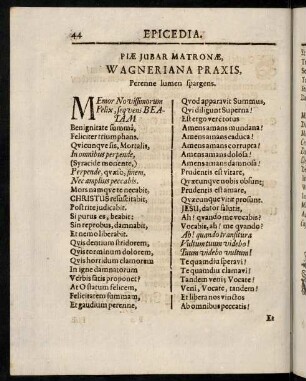 44 EPICEDIA.
PIÆ JUBAR MATRONÆ,
WAGNERIANA PRAXIS,
Perenne lumen spargens.
MEmor Novissimorum
Felix, seqvens BEA-
TAM
Benignitate summâ,
Feliciter triumphans.
Qvicunqve sis, Mortalis,
In omnibus perpende,
(Syracide monente,)
Perpende, qvæso, finem,
Nec ampliùs peccabis.
Mors namqve te necabit.
CHRISTUS resuscitabit,
Post rite judicabit.
Si purus es, beabit:
Sin reprobus, damnabit,
Et nemo liberabit.
Quis dentium stridorem,
Quis terminum dolorem,
Quis horridum clamorem
In igne damnatorum
Verbis satis proponet?
At O statum felicem,
Felicitatem summam,
Et gaudium perenne,
Qvod apparavit Summus,
Qvi diligunt Superna!
Est ergo verè totus
Amens amans mundana!
Amens amans caduca!
Amens amans corrupta!
Amens amans dolosa!
Amens amans damnosa!
Prudentis est vitare,
Qvæcunqve nobis obsunt;
Prudentis est amare,
Qvæcunqve vitæ prosunt.
JESU, dator salutis,
Ah! qvando me vocabis?
Vocabis, ah! me qvando?
Ah! qvando transitura
Vultum tuum videbo!
Tuum videbo vultum!
Te quamdiu speravi?
Te quamdiu clamavi?
Tandem veni, Vocate!
Veni, Vocate, tandem!
Et libera nos vinctos
Ab omnibus peccatis!
Et